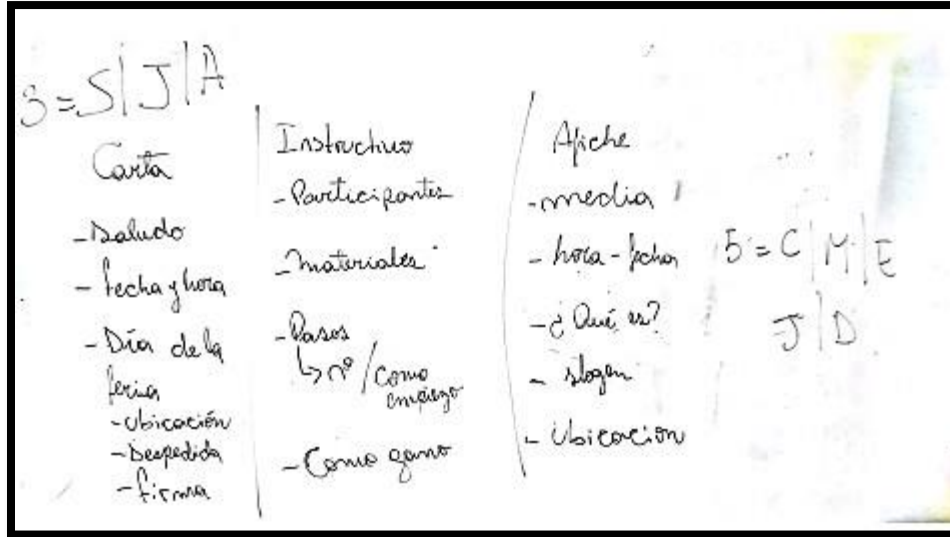 3 = S | J | A
Carta
- Saludo
- fecha y hora
- Día de la
feria
- Ubicación
- Despedida
- firma
Instructivo
- Participantes
- materiales
- Pasos
↳ nº / como
empiezo
- Como gano
Afiche
- media
- hora - fecha
- ¿Qué es?
- slogan
- Ubicación
5 = C | M | E
J | D